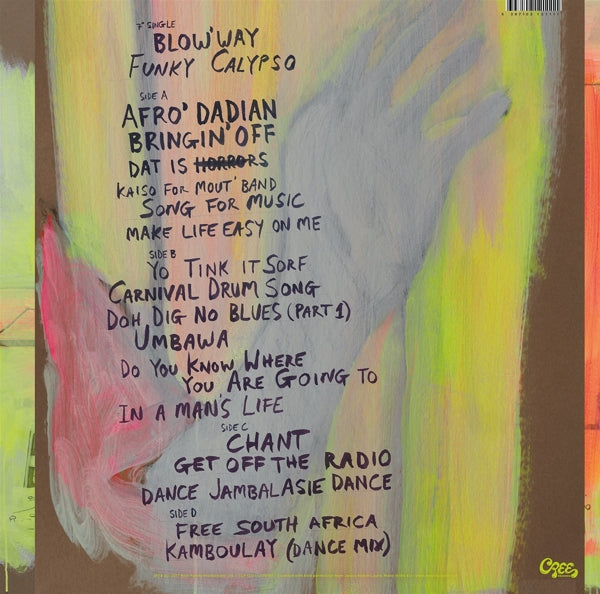 7" SINGLE
BLOW'WAY
FUNKY CALYPSO
SIDE A
AFRO' DADIAN
BRINGIN' OFF
DAT IS HORRORS
KAISO FOR MOUT' BAND
SONG FOR MUSIC
MAKE LIFE EASY ON ME
SIDE B
YO TINK IT SORF
CARNIVAL DRUM SONG
DOH DIG NO BLUES (PART 1)
UMBAWA
DO YOU KNOW WHERE
YOU ARE GOING TO
IN A MAN'S LIFE
SIDE C
CHANT
GET OFF THE RADIO
DANCE JAMBALASIE DANCE
SIDE D
FREE SOUTH AFRICA
KAMBOULAY (DANCE MIX)
CREE